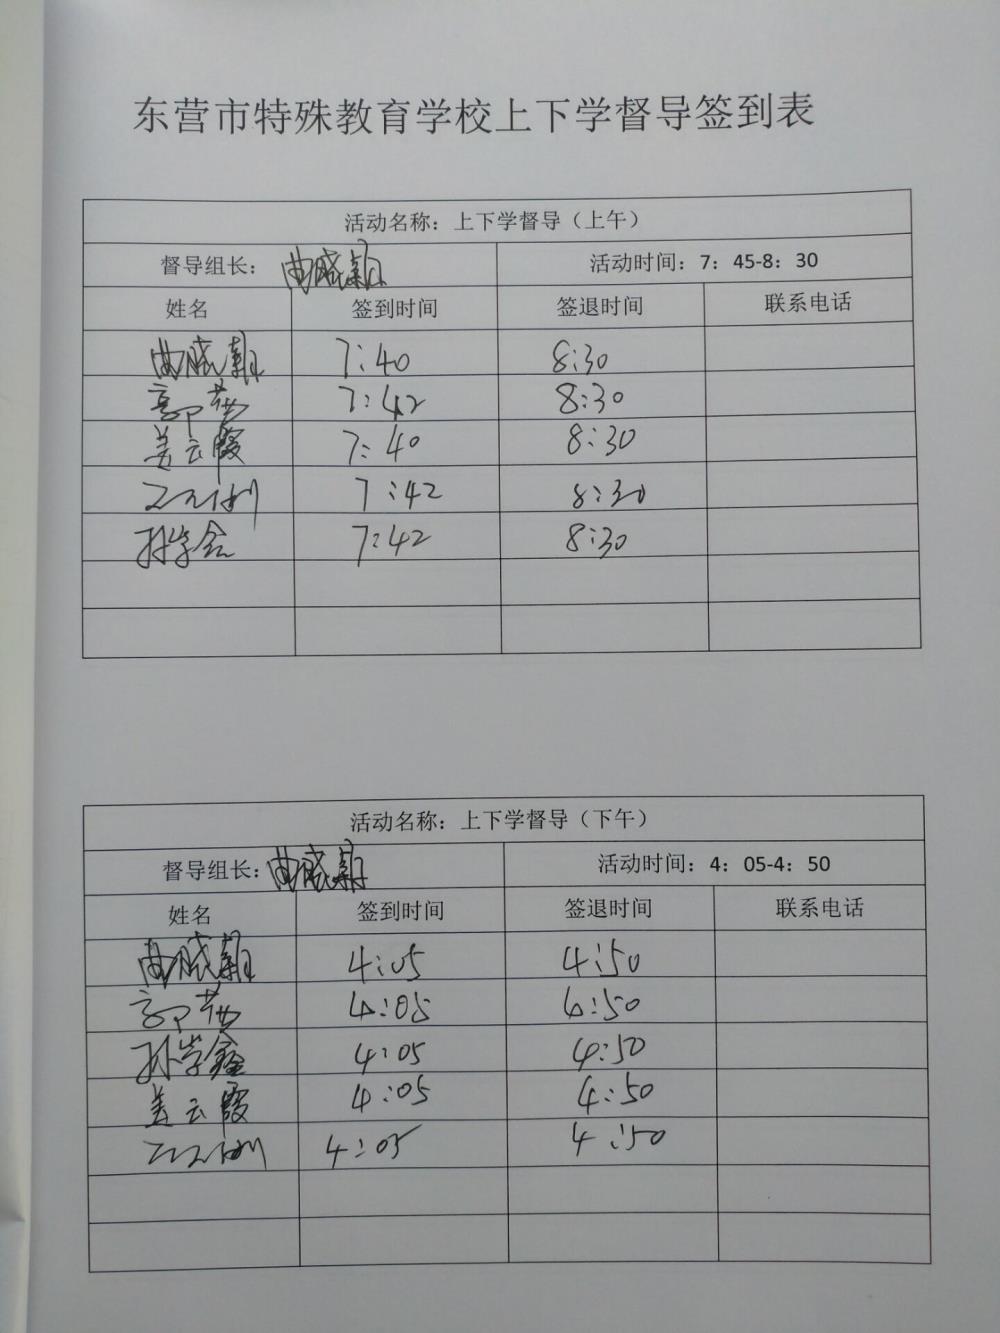 东营市特殊教育学校上下学督导签到表
活动名称：上下学督导（上午）
督导组长：曲晓朝 活动时间：7：45-8：30
姓名 签到时间 签退时间 联系电话
曲晓朝 7:40 8:30
郭 7:42 8:30
姜云霞 7:40 8:30
7:42 8:30
孙学鑫 7:42 8:30
活动名称：上下学督导（下午）
督导组长：曲晓朝 活动时间：4：05-4：50
姓名 签到时间 签退时间 联系电话
曲晓朝 4:05 4:50
郭 4:05 4:50
孙学鑫 4:05 4:50
姜云霞 4:05 4:50
4:05 4:50